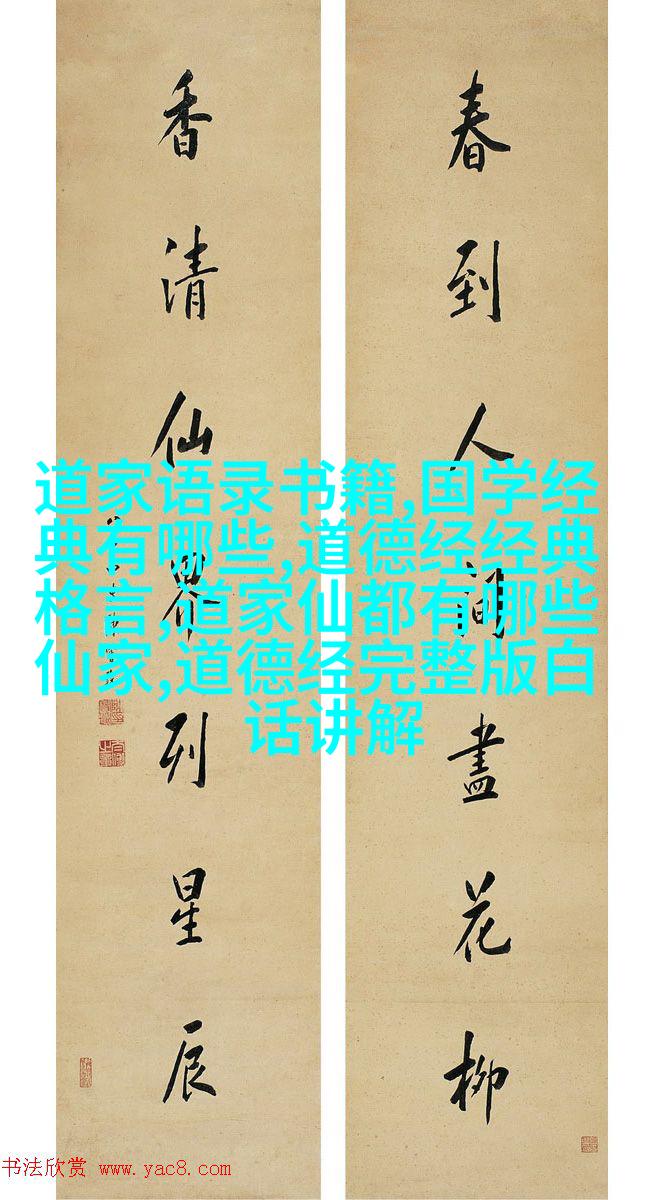 春到人间盡花柳
香清仙界列星辰
道家语录书籍,国学经
典有哪些,道德经经典
格言,道家仙都有哪些
仙家,道德经完整版白
话讲解
书法欣赏 www.yac8.com